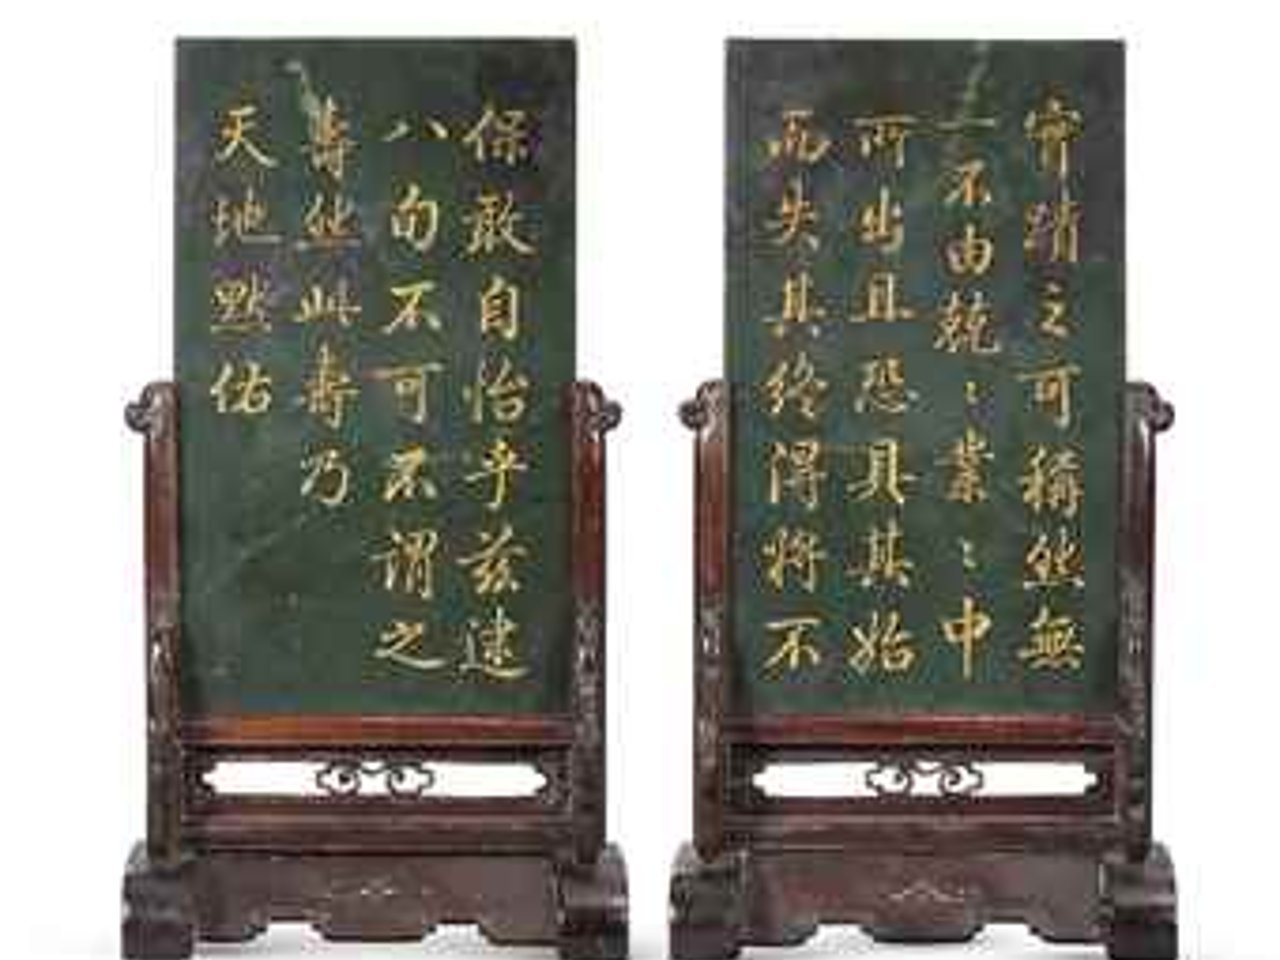 寧蹟之可稱然無
一不由兢〻業〻中
所出且恐具其始
而失其終得將不
保敢自怡乎茲逮
八旬不可不謂之
壽然此壽乃
天地默佑